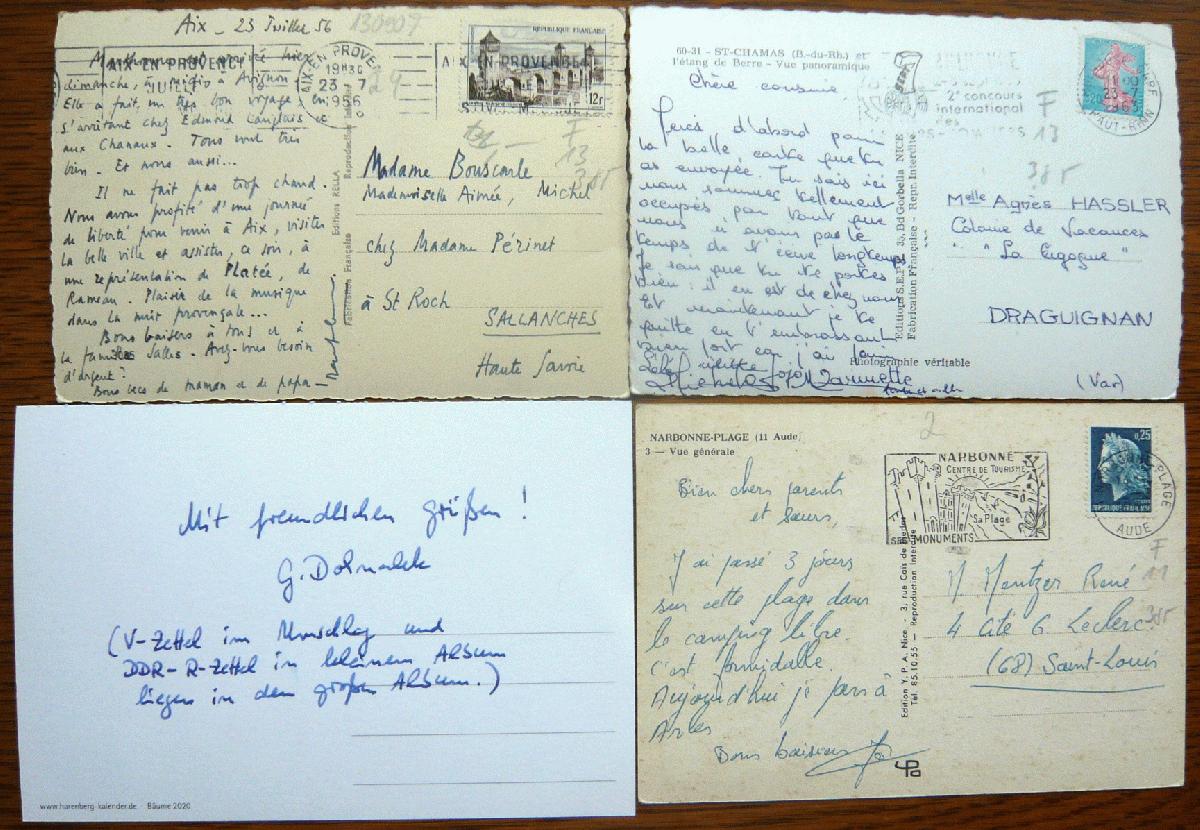 Aix - 23 Juillet 56
130909
29
AIX EN PROVENCE
JUILLET
AIX EN PROVENCE
19H30
23 7
1956
AIX EN PROVENCE
REPUBLIQUE FRANÇAISE
12f
dimanche, à midi, à Avignon
Elle a fait un très bon voyage en
s'arrêtant chez Edmond
aux Chanaux. Tous vont très
bien. Et nous aussi...
Il ne fait pas trop chaud.
Nous avons profité d'une journée
de liberté pour venir à Aix, visiter
la belle ville et assister, ce soir, à
une représentation de Platée, de
Rameau. Plaisir de la musique
dans la nuit provençale...
Bons baisers à tous et à
la famille Salles. Avez-vous besoin
d'argent?
Bons becs de maman et de papa -
Editions RELLA
Fabrication Française Reproduction
F
13
385
Madame Bouscarle
Mademoiselle Aimée, Michel
chez Madame Périnet
à St Roch
SALLANCHES
Haute Savoie
60-31 - ST-CHAMAS (B.-du-Rh.) et
l'étang de Berre - Vue panoramique
2e concours
international
des
HAUT-RHIN
F
13
385
Chère cousine
Merci d'abord pour
la belle carte que tu
as envoyée. Tu sais ici
nous sommes tellement
occupés par tout que
nous n'avons pas le
temps de t'écrire longtemps
Je sais que tu te portes
bien: il en est de chez nous
Et maintenant je te
quitte en t'embrassant
bien fort
Editions S.E.P.T. 35, Bd Gorbella NICE
Fabrication Française - Repr. Interdite
Melle Agnès HASSLER
Colonie de Vacances
"La Cigogne"
DRAGUIGNAN
Photographie véritable
(Var)
Mit freundlichen Grüßen!
(V-Zettel im Umschlag und
DDR-R-Zettel in kleinem Album
liegen in dem großen Album.)
www.harenberg-kalender.de · Bäume 2020
2
NARBONNE-PLAGE (11 Aude)
3 — Vue générale
NARBONNE
CENTRE DE TOURISME
Sa Plage
SES MONUMENTS
0,25
REPUBLIQUE FRANÇAISE
PLAGE
AUDE
F
11
385
Bien chers parents
et sœurs,
J'ai passé 3 jours
sur cette plage dans
le camping libre.
c'est formidable.
Aujourd'hui je pars à
Arles
Bons baisers
Edition Y.P.A. Nice - 3, rue Caïs de Pierlas
Tél. 85.10.55 - Reproduction Interdite
M Mentzer René
4 Cité G. Leclerc
(68) Saint-Louis